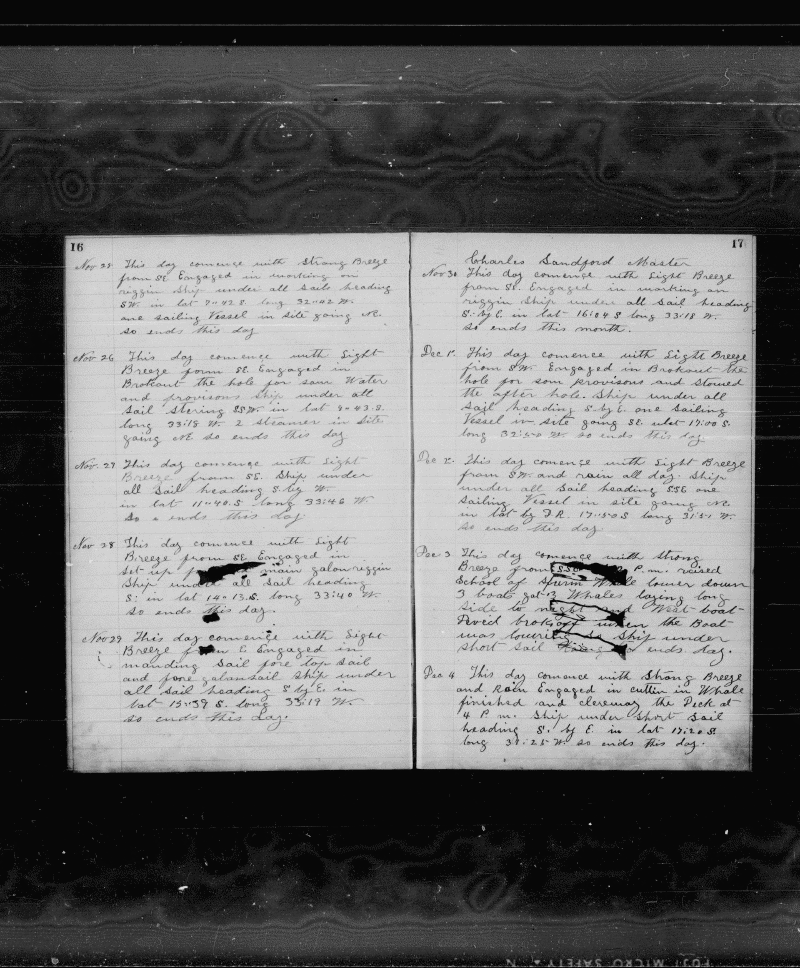 16
Nov 25 This day comence with Strong Breeze
from SE. Engaged in working on
riggin Ship under all Sails heading
SW. in lat 7-42 S. long 32-02 W.
one sailing Vessel in site going NE.
so ends this day
Nov 26 This day comence with Light
Breeze form SE Engaged in
Brokout the hole for som Water
and provisons Ship under all
Sail Stering SSW. in lat 9-43.S.
long 33:18 W. 2 steamer in Site
going NE so ends this day
Nov. 27 This day comence with Light
Breeze from SE. Ship under
all Sail heading S. by W.
in lat 11-40.S long 33:46 W.
So ends this day
Nov 28 This day comence with Light
Breeze from SE Engaged in
Set up main galon riggin
Ship under all Sail heading
S: in lat 14-13.S. long 33:40 W.
so ends this day.
Nov 29 This day comence with Light
Breeze from E Engaged in
manding Sail fore top Sail
and fore galansail Ship under
all Sail heading S by E. in
lat 15:39 S. long 33:19 W.
so ends this day.
17
Charles Sandford Master
Nov 30 This day comence with Light Breeze
from SE. Engaged in working on
riggin Ship under all Sail heading
S. by E. in lat 16:04 S long 33:18 W.
so ends this month.
Dec 1. This day comence with Light Breeze
from SW. Engaged in Brokout the
hole for som provisons and Stowed
the after hole. Ship under all
Sail heading S. by E. one Sailing
Vessel in site going SE. in lat 17:00 S.
long 32:50 W. so ends this day
Dec 2. This day comence with Light Breeze
from SW. and rain all day. Ship
under all Sail heading SSE one
Sailing Vessel in site going NE.
in lat by D.R. 17:50 S long 31:51 W.
so ends this day.
Dec 3 This day comence with Strong
Breeze from SSE P.m. raised
School of Sperm Whale lower down
3 boats got 3 Whales laying long
Side to night and West boat
broke when the Boat
was Ship under
Short Sail ends day.
Dec 4 This day comence with Strong Breeze
and Rain Engaged in cuttin in Whale
finished and clereway the Deck at
4 P.m. Ship under Short Sail
heading S. by E. in lat 17:20 S.
long 31:25 W. so ends this day.
FUJI MICRO SAFETY